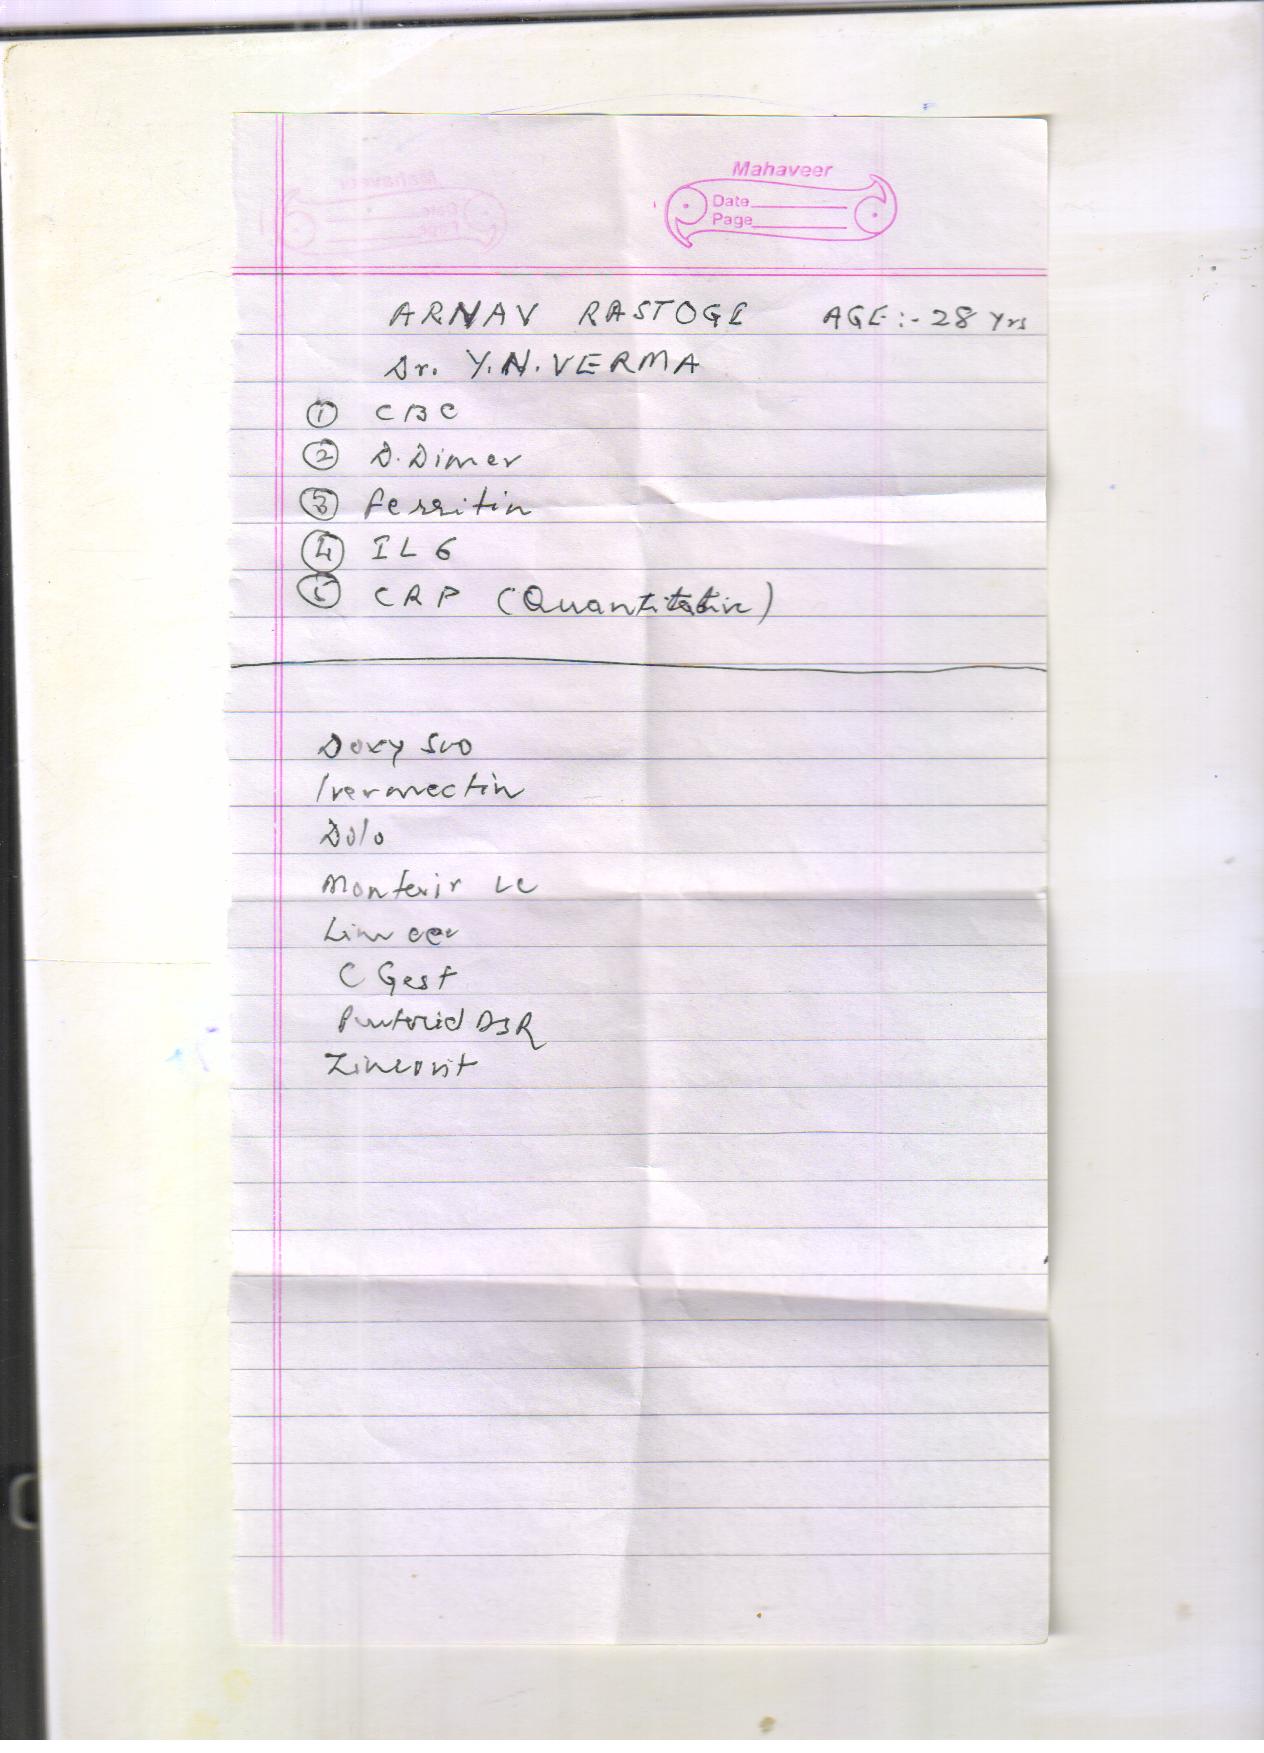 Mahaveer
Date
Page
ARNAV RASTOGI AGE:- 28 Yrs
Dr. Y.N. VERMA
① CBC
② D.Dimer
③ ferritin
④ IL 6
⑤ CRP (Quantitative)
Doxy
Ivermectin
Dolo
LC
Limcee
C Gest
DSR
Zincovit